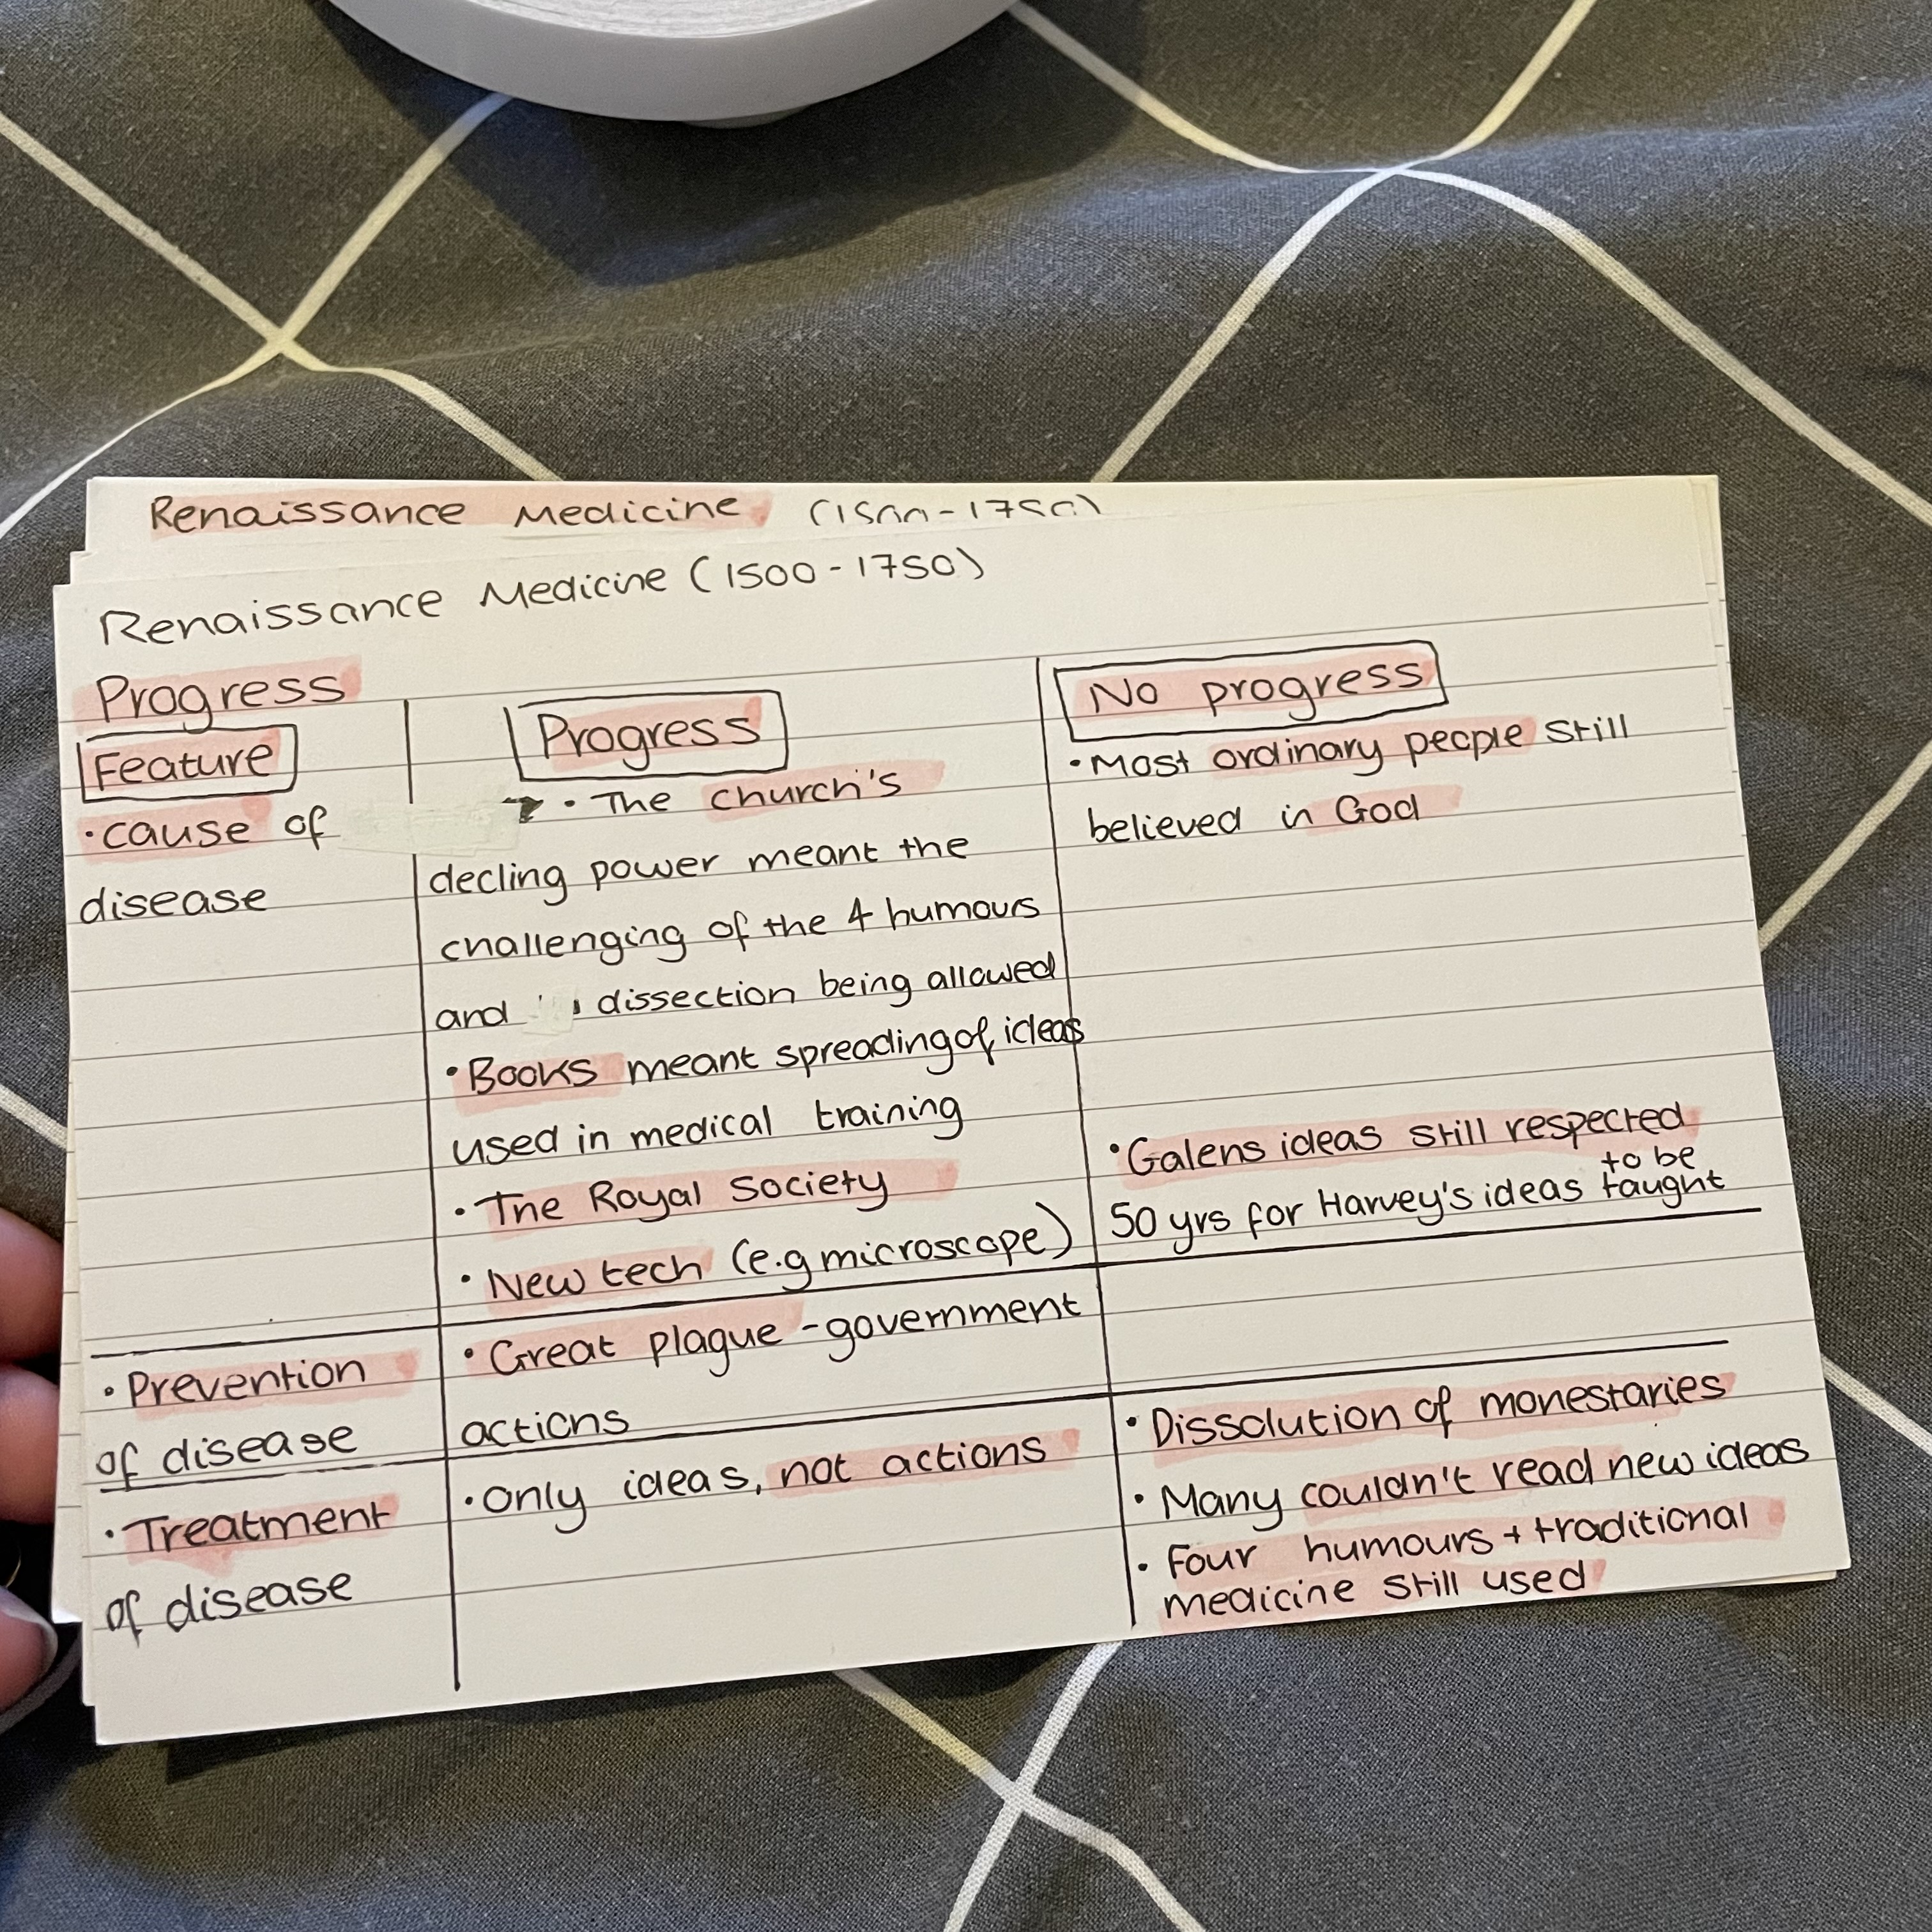 Renaissance Medicine (1500-1750)
Renaissance Medicine (1500-1750)
Progress
Feature
Progress
No progress
• cause of
disease
• The church's
decling power meant the
challenging of the 4 humours
and dissection being allowed
• Books meant spreading of ideas
used in medical training
• The Royal Society
• New tech (e.g microscope)
• Most ordinary people still
believed in God
• Galens ideas still respected
to be
50 yrs for Harvey's ideas taught
• Prevention
of disease
• Great plague - government
actions
• Treatment
of disease
• Only ideas, not actions
• Dissolution of monestaries
• Many couldn't read new ideas
• Four humours + traditional
medicine still used